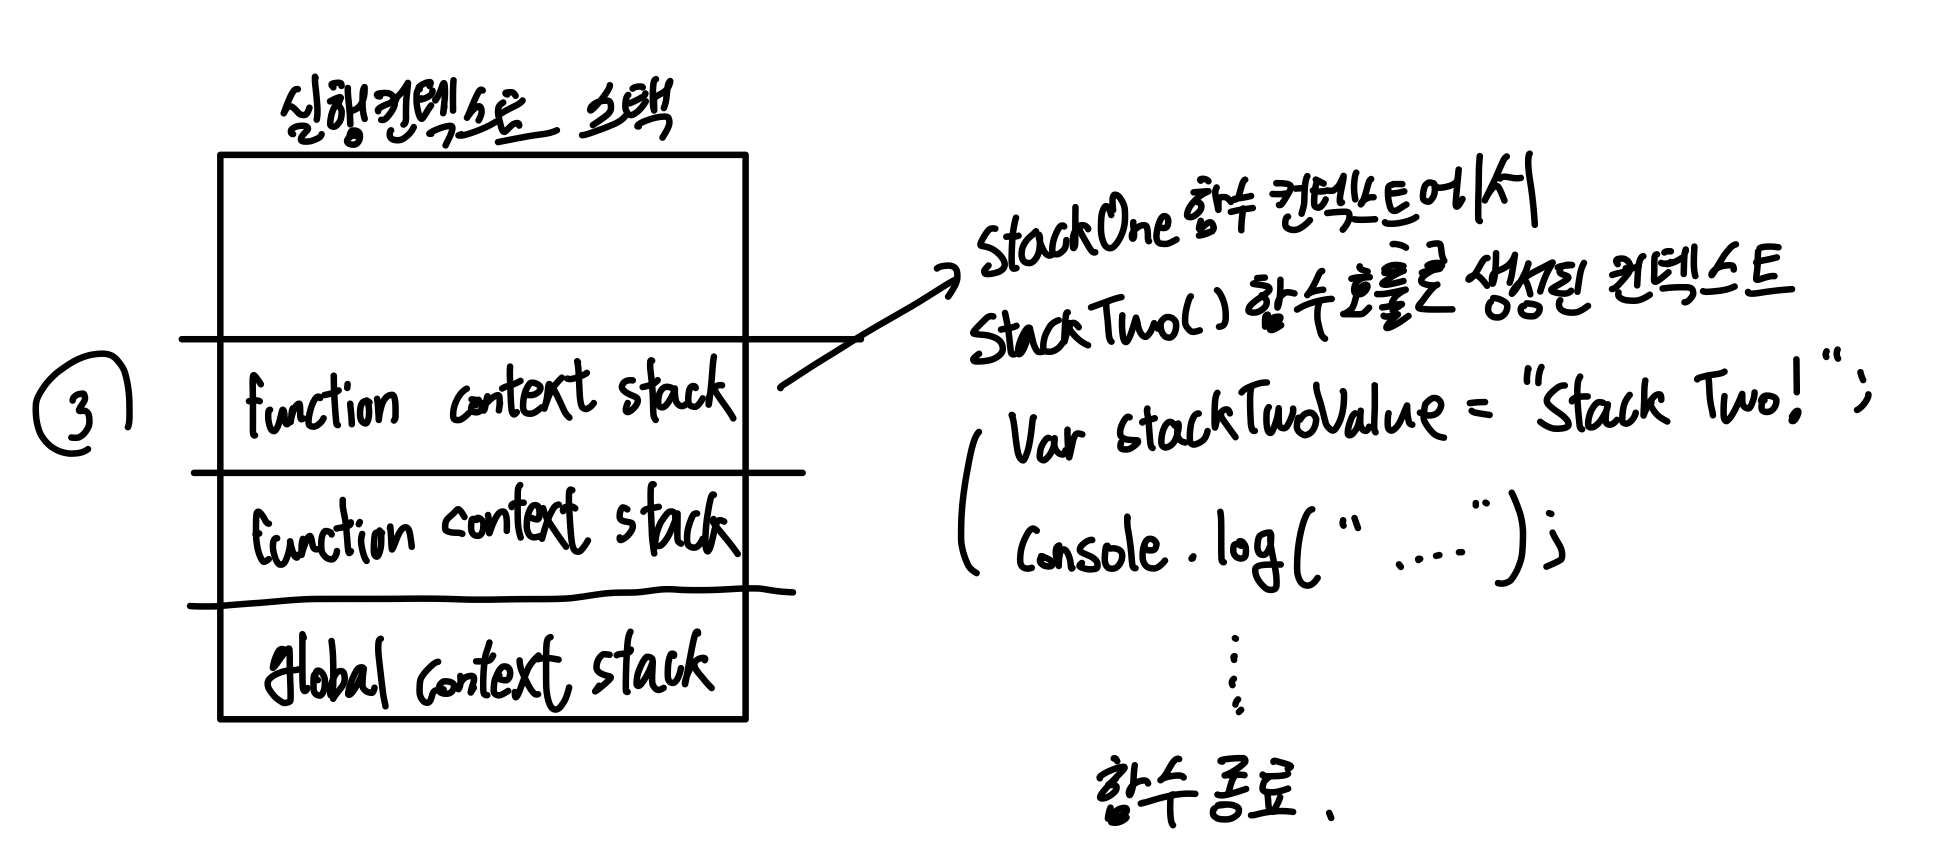 실행컨텍스트 스택
③
function context stack
function context stack
global context stack
StackOne 함수 컨텍스트에서
StackTwo() 함수 호출로 생성된 컨텍스트
Var stackTwoValue = "Stack Two!";
Console.log("....");
함수 종료.